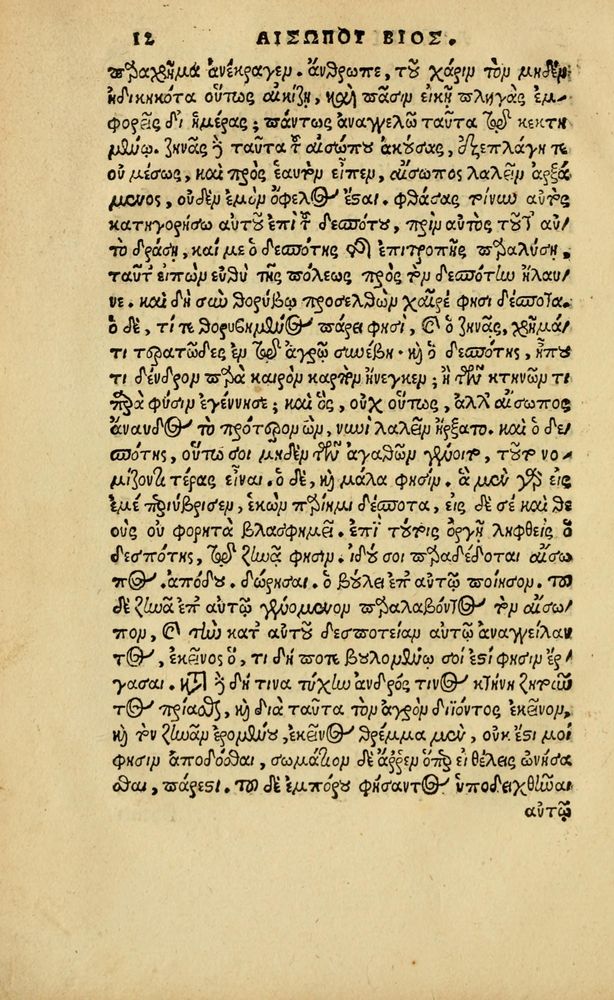 12 ΑΙΣΩΠΟΥ ΒΙΟΣ.
πραχῆμα ἀνέκραγεν. ἄνθρωπε, τοῦ χάριν τὸν μηδὲν
ἠδικηκότα οὕτως αἰκίζῃ, καὶ πᾶσιν εἰκῆ πληγὰς ἐμ-
φορεῖς δι ἡμέρας; πάντως ἀναγγελῶ ταῦτα τῷ κεκτη
μένῳ. ζηνᾶς δὲ ταῦτα τοῦ αἰσώπου ἀκούσας, ἐξεπλάγη τε
οὐ μέσως, καὶ πρὸς ἑαυτὸν εἶπεν, αἴσωπος λαλεῖν ἀρξά
μενος, οὐδὲν ἐμὸν ὄφελος ἔσται. φθάσας τοίνυν αὐτὸς
κατηγορήσω αὐτοῦ ἐπὶ τοῦ δεσπότου, πρὶν αὐτὸς τοῦτ αὐ/
τὸ δράσῃ, καί με ὁ δεσπότης τῆς ἐπιτροπῆς παραλύσῃ.
ταῦτ εἰπὼν εὐθὺ τῆς πόλεως πρὸς τὸν δεσπότην ἤλαυ/
νε. καὶ δὴ σὺν θορύβῳ προσελθὼν χαῖρέ φησι δέσποτα.
ὁ δὲ, τί τεθορυβημένος πάρει φησὶ, καὶ ὁ ζηνᾶς, χρῆμά/
τι τερατῶδες ἐν τῷ ἀγρῷ συνέβη. καὶ ὁ δεσπότης, ἤπου
τι δένδρον παρὰ καιρὸν καρπὸν ἤνεγκεν; ἢ τῶν κτηνῶν τι
παρὰ φύσιν ἐγέννησε; καὶ ὃς, οὐχ οὕτως, ἀλλ᾽ αἴσωπος
ἄναυδος τὸ πρότερον ὢν, νυνὶ λαλεῖν ἤρξατο. καὶ ὁ δε/
σπότης, οὕτω σοι μηδὲν τῶν ἀγαθῶν γένοιτο, τοῦτο νο/
μίζοντι τέρας εἶναι. ὁ δὲ, καὶ μάλα φησίν. ἃ μὲν γὰρ εἰς
ἐμέ περιύβρισεν, ἑκὼν παρίημι δέσποτα, εἰς δὲ σέ καὶ θε
οὺς οὐ φορητὰ βλασφημεῖ. ἐπὶ τούτοις ὀργῇ ληφθεὶς ὁ
δεσπότης, τῷ ζηνᾷ φησιν. ἰδού σοι παραδέδοται αἴσω
πος. ἀπόδου. δώρησαι. ὃ βούλει ἐπ᾽ αὐτῷ ποίησον. τοῦ
δὲ ζηνᾶ ἐπ᾽ αὐτῷ γενομένου παραλαβόντος τὸν αἴσω/
πον, καὶ τὴν κατ᾽ αὐτοῦ δεσποτείαν αὐτῷ ἀναγγείλαν
τος, ἐκεῖνος ὅ, τι δή ποτε βουλομένῳ σοί ἐστί φησιν ἔρ/
γασαι. κατὰ δὲ δή τινα τύχην ἀνδρός τινος κτήνη ζητοῦν
τος πρίασθαι, καὶ διὰ ταῦτα τὸν ἀγρὸν διϊόντος ἐκεῖνον,
καὶ τὸν ζηνᾶν ἐρομένου, ἐκεῖνος θρέμμα μὲν, οὐκ ἔστι μοί
φησιν ἀποδόσθαι, σωμάτιον δὲ ἄρρεν ὅπερ εἰ θέλεις ὠνήσα
σθαι, πάρεστι. τοῦ δὲ ἐμπόρου φήσαντος ὑποδειχθῆναι
αὐτῷ